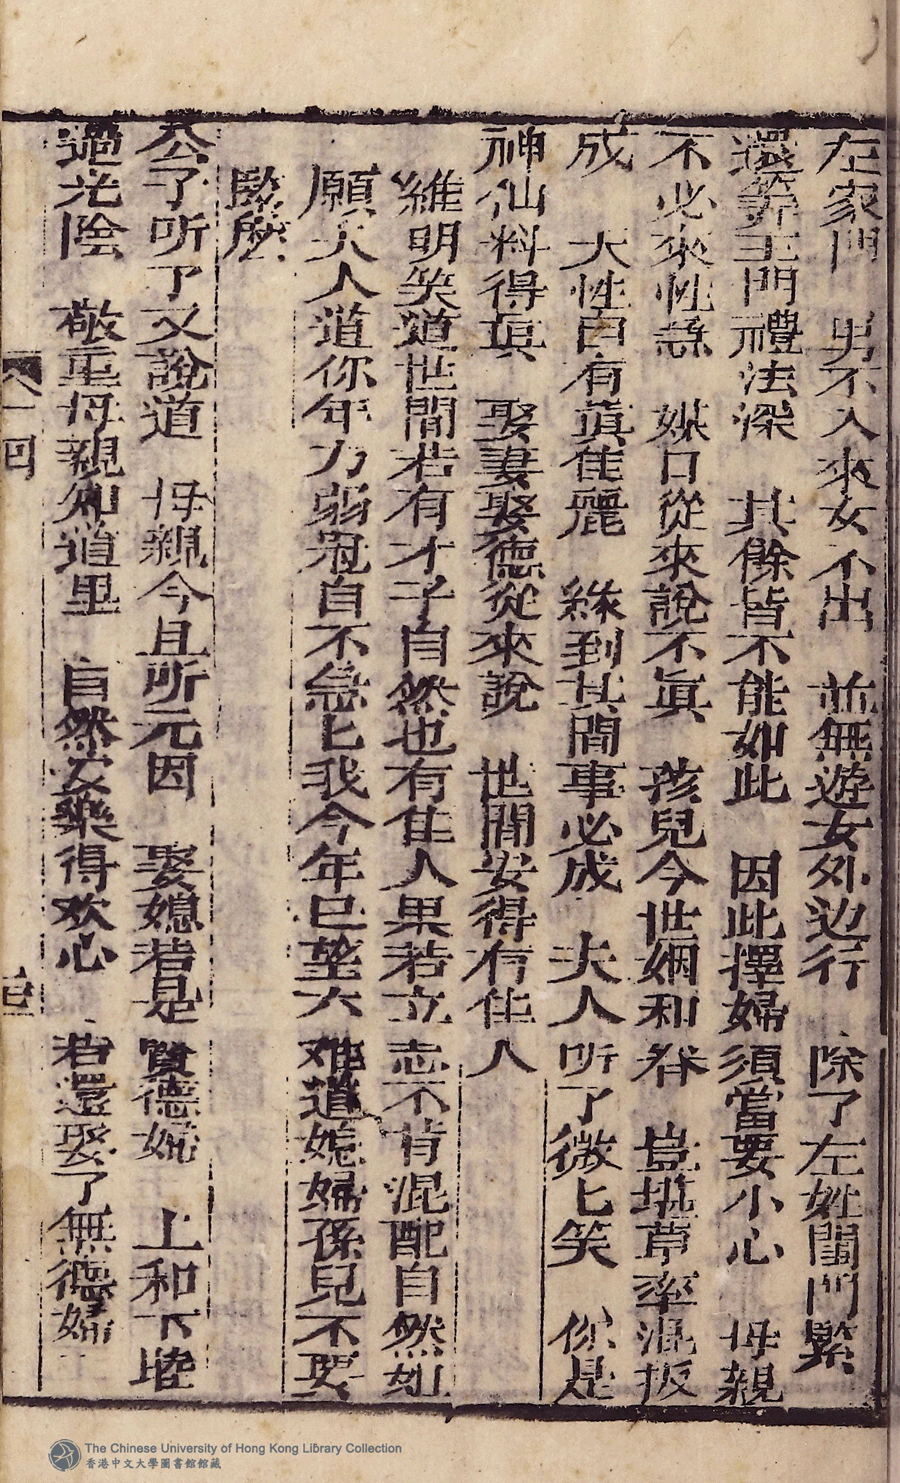 左家門　男不入來女不出　並無遊女外边行　除了左姓閨門緊
還筭王門禮法深　其餘皆不能如此　因此擇婦須當要小心　母親
不必來性急　媒口從來說不眞　孩兒今世姻和眷　豈堪草率混扳
成　大性自有眞佳麗　緣到其間事必成　夫人听了微匕笑　你是
神仙料得眞　娶妻娶德從來說　世間安得有佳人
維明笑道世間若有才子自然也有佳人果若立志不肯混配自然如
願夫人道你年力弱冠自不急匕我今年已望六难道媳婦孫兒不要
臥麽
公子听了又說道　母親今且听元因　娶媳若是賢德婦　上和下睦
過光陰　敬重母親知道里　自然安樂得欢心　若還娶了無德婦
一回